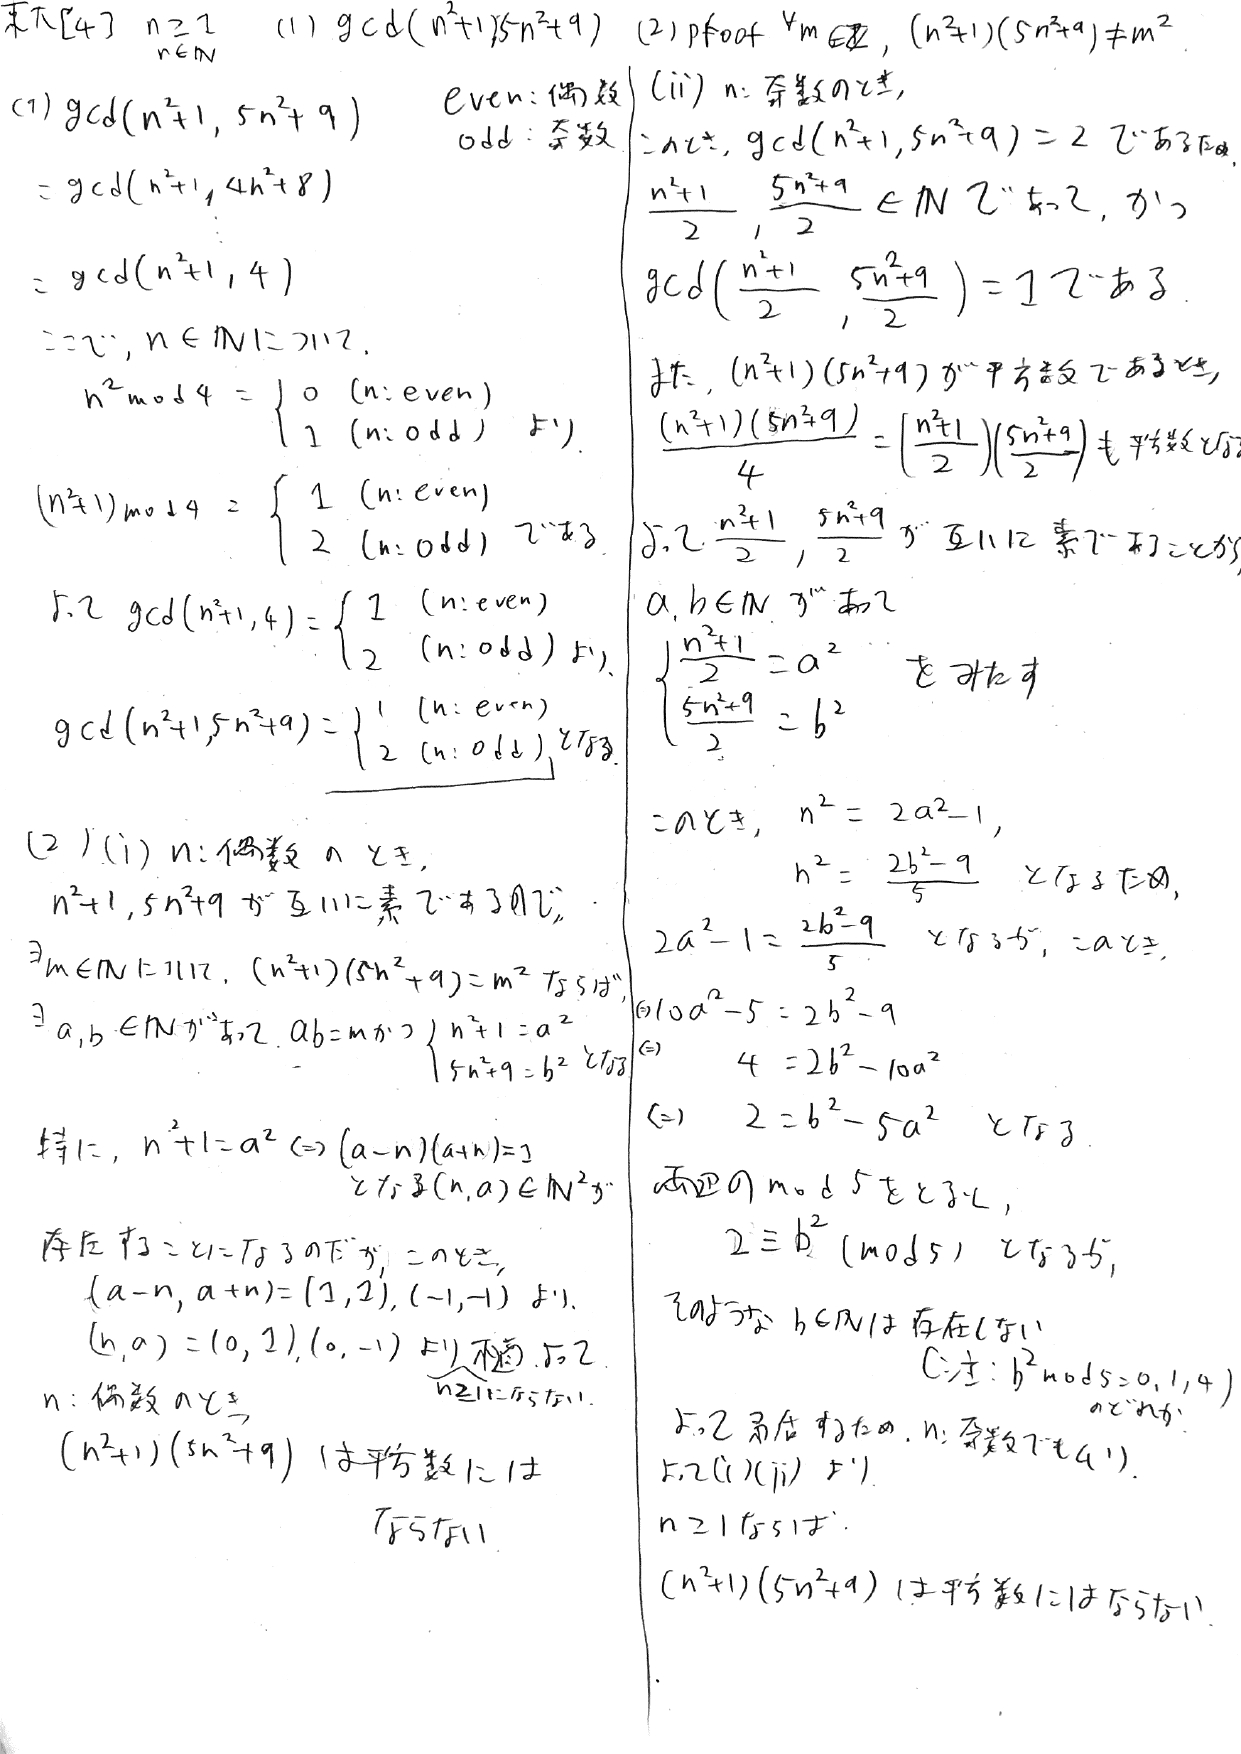 東大[4] n≧1 n∈ℕ (1) gcd(n²+1,5n²+9) (2) proof ∀m∈ℤ, (n²+1)(5n²+9)≠m²
(1) gcd(n²+1, 5n²+9)
even: 偶数
odd: 奇数
= gcd(n²+1, 4n²+8)
⋮
= gcd(n²+1, 4)
ここで, n∈ℕについて,
n² mod 4 = { 0 (n: even)
1 (n: odd) より
(n²+1) mod 4 = { 1 (n: even)
2 (n: odd) である
よって gcd(n²+1, 4) = { 1 (n: even)
2 (n: odd) より,
gcd(n²+1,5n²+9) = { 1 (n: even)
2 (n: odd) となる
(2) (i) n: 偶数 の とき,
n²+1, 5n²+9 が 互いに素であるので,
∃m∈ℕについて, (n²+1)(5n²+9)=m² ならば,
∃a,b∈ℕがあって ab=mかつ { n²+1=a²
5n²+9=b² となる
特に, n²+1=a² ⇔ (a-n)(a+n)=1
となる(n,a)∈ℕ²が
存在することになるのだが, このとき,
(a-n, a+n)=(1,1), (-1,-1) より,
(n,a)=(0,1),(0,-1) より不適 よって
n≧1にならない
n: 偶数のとき,
(n²+1)(5n²+9) は平方数には
ならない
(ii) n: 奇数のとき,
このとき, gcd(n²+1,5n²+9)=2 であるため,
(n²+1)/2, (5n²+9)/2 ∈ℕ であって, かつ
gcd((n²+1)/2, (5n²+9)/2)=1である
また, (n²+1)(5n²+9)が平方数であるとき,
(n²+1)(5n²+9)/4 = ((n²+1)/2)((5n²+9)/2)も平方数となる
よって (n²+1)/2, (5n²+9)/2 が 互いに素であることから,
a,b∈ℕ があって
{ (n²+1)/2 = a²
(5n²+9)/2 = b² をみたす
このとき, n² = 2a²-1,
n² = (2b²-9)/5 となるため,
2a²-1 = (2b²-9)/5 となるが, このとき,
⇔10a²-5 = 2b²-9
⇔ 4 = 2b²-10a²
⇔ 2 = b²-5a² となる
両辺の mod 5をとると,
2≡b² (mod 5) となるが,
そのような b∈ℕは存在しない
(注: b² mod 5=0,1,4)
のどれか
よって矛盾するため, n: 奇数でもない
よって(i)(ii) より
n≧1ならば
(n²+1)(5n²+9) は平方数にはならない